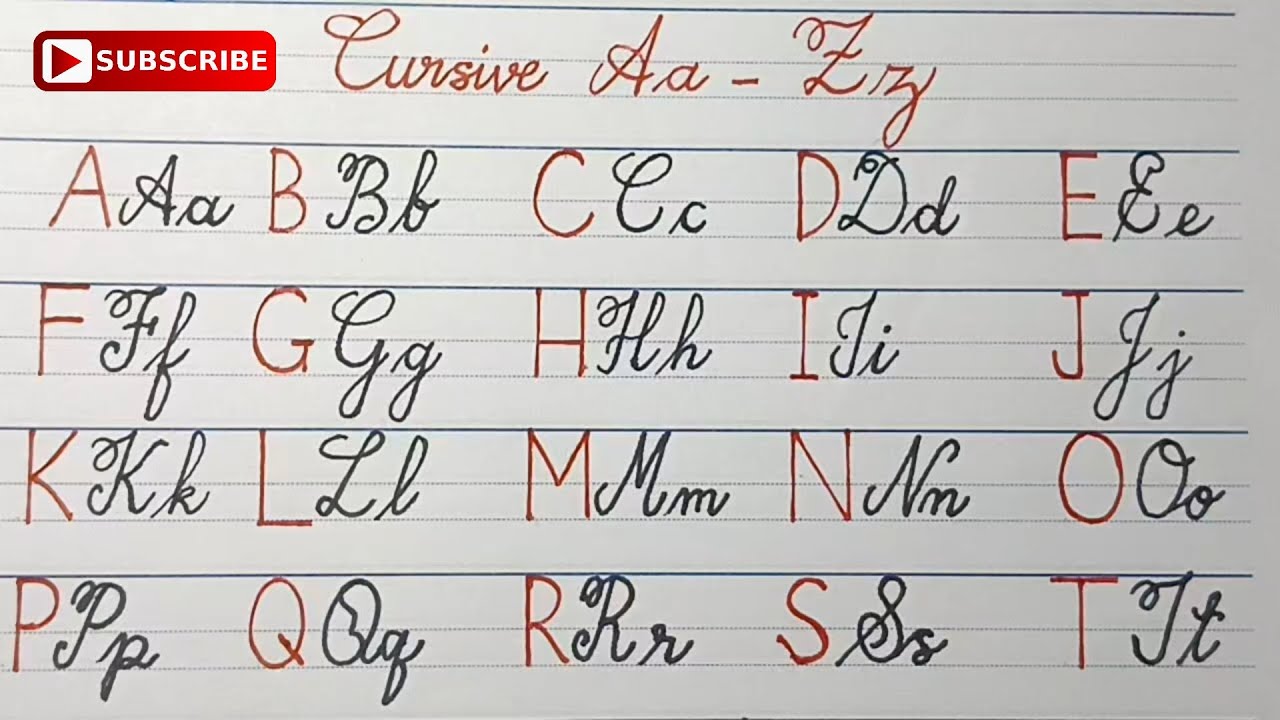 SUBSCRIBE
Cursive Aa - Zz
A Aa B Bb C Cc D Dd E Ee
F Ff G Gg H Hh I Ii J Jj
K Kk L Ll M Mm N Nn O Oo
P Pp Q Qq R Rr S Ss T Tt